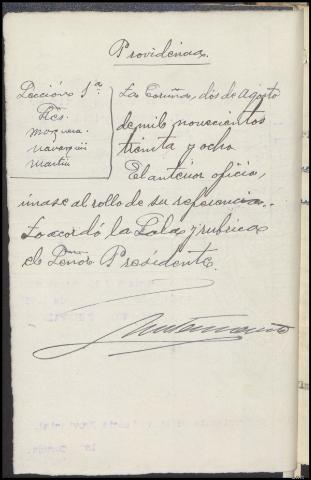 Providencia.
Sección 1ª.
Sres.
Mosquera.
Martin
La Coruña, dós de Agosto
de mil novecientos
treinta y ocho
El anterior oficio,
únase al rollo de su referencia.
Lo acordó la Sala y rubrica
el Señor Presidente.